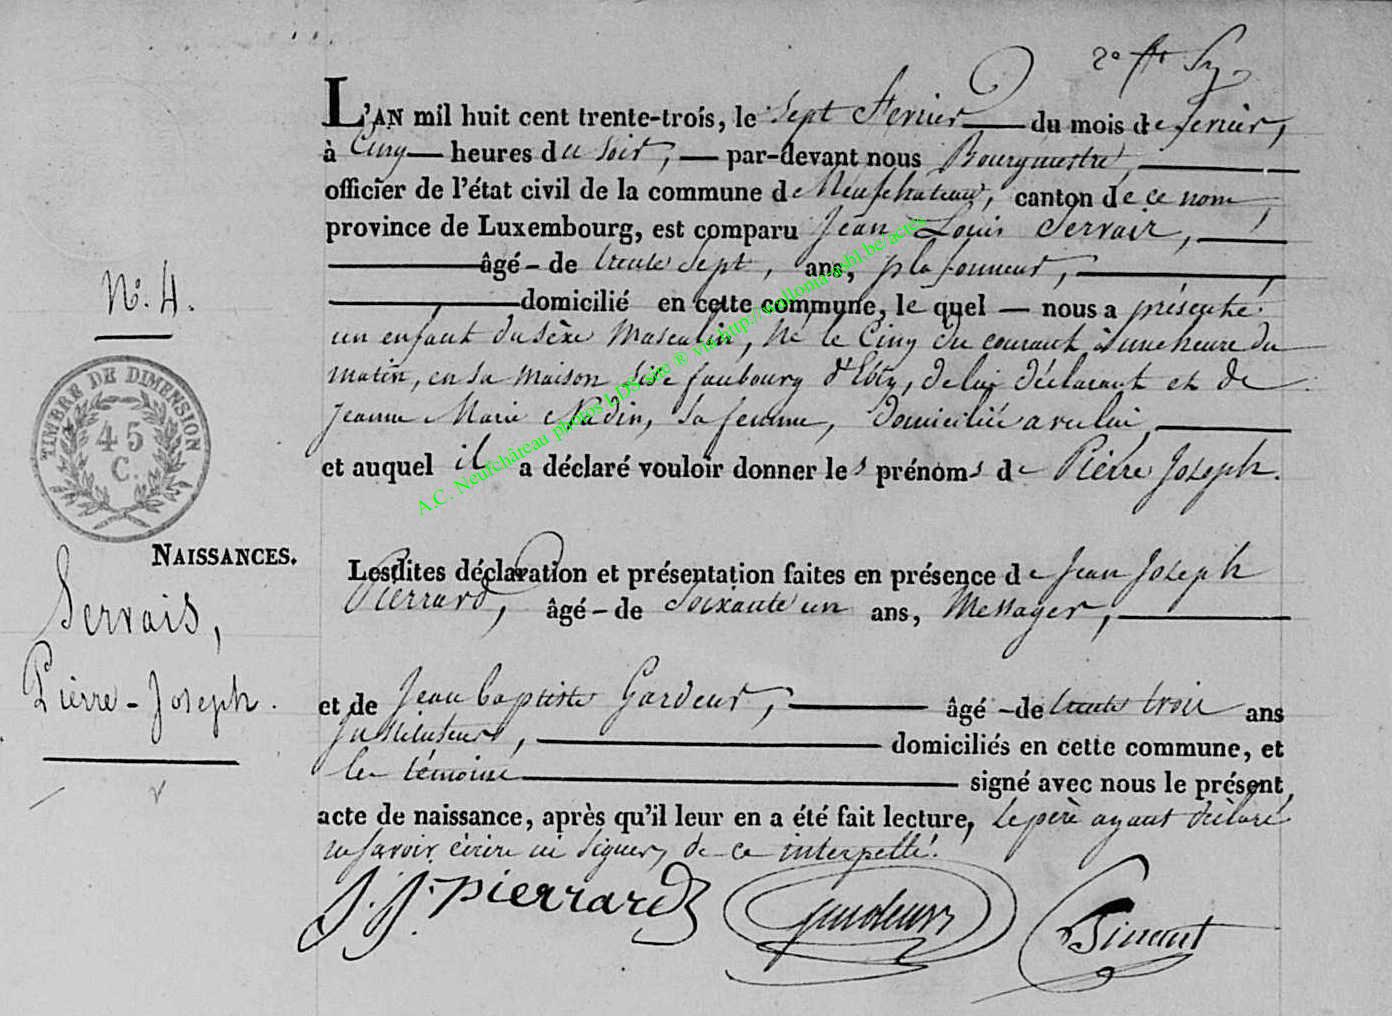 2e
L'AN mil huit cent trente-trois, le Sept Fevrier du mois de fevrier,
à Cinq heures du Soir, par-devant nous Bourgmestre,
officier de l'état civil de la commune de Neufchateau, canton de ce nom,
province de Luxembourg, est comparu Jean Louis Servais,
âgé de trente Sept, ans, plafonneur,
domicilié en cette commune, le quel nous a présenté
N° 4.
un enfant du Sèxe Masculin, né le Cinq du courant à une heure du
matin, en Sa maison Sise faubourg d'Etty, de lui déclarant et de
Jeanne Marie Nadin, Sa femme, Domiciliée avec lui,
et auquel il a déclaré vouloir donner les prénoms de Pièrre Joseph.
TIMBRE DE DIMENSION
45
C.
A.C. Neufchâteau photos LDS site ® via http://wallonia-asbl.be/actes
NAISSANCES.
Servais,
Pièrre-Joseph.
Lesdites déclaration et présentation faites en présence de Jean Joseph
Pierrard, âgé de Soixante un ans, Messager,
et de Jean baptiste Gardeur, âgé de trente trois ans
Instituteur, domiciliés en cette commune, et
les témoins signé avec nous le présent
acte de naissance, après qu'il leur en a été fait lecture, Le père ayant déclaré
ne Savoir écrire ni Signer, de ce interpellé.
J. J. pierrard Gardeur